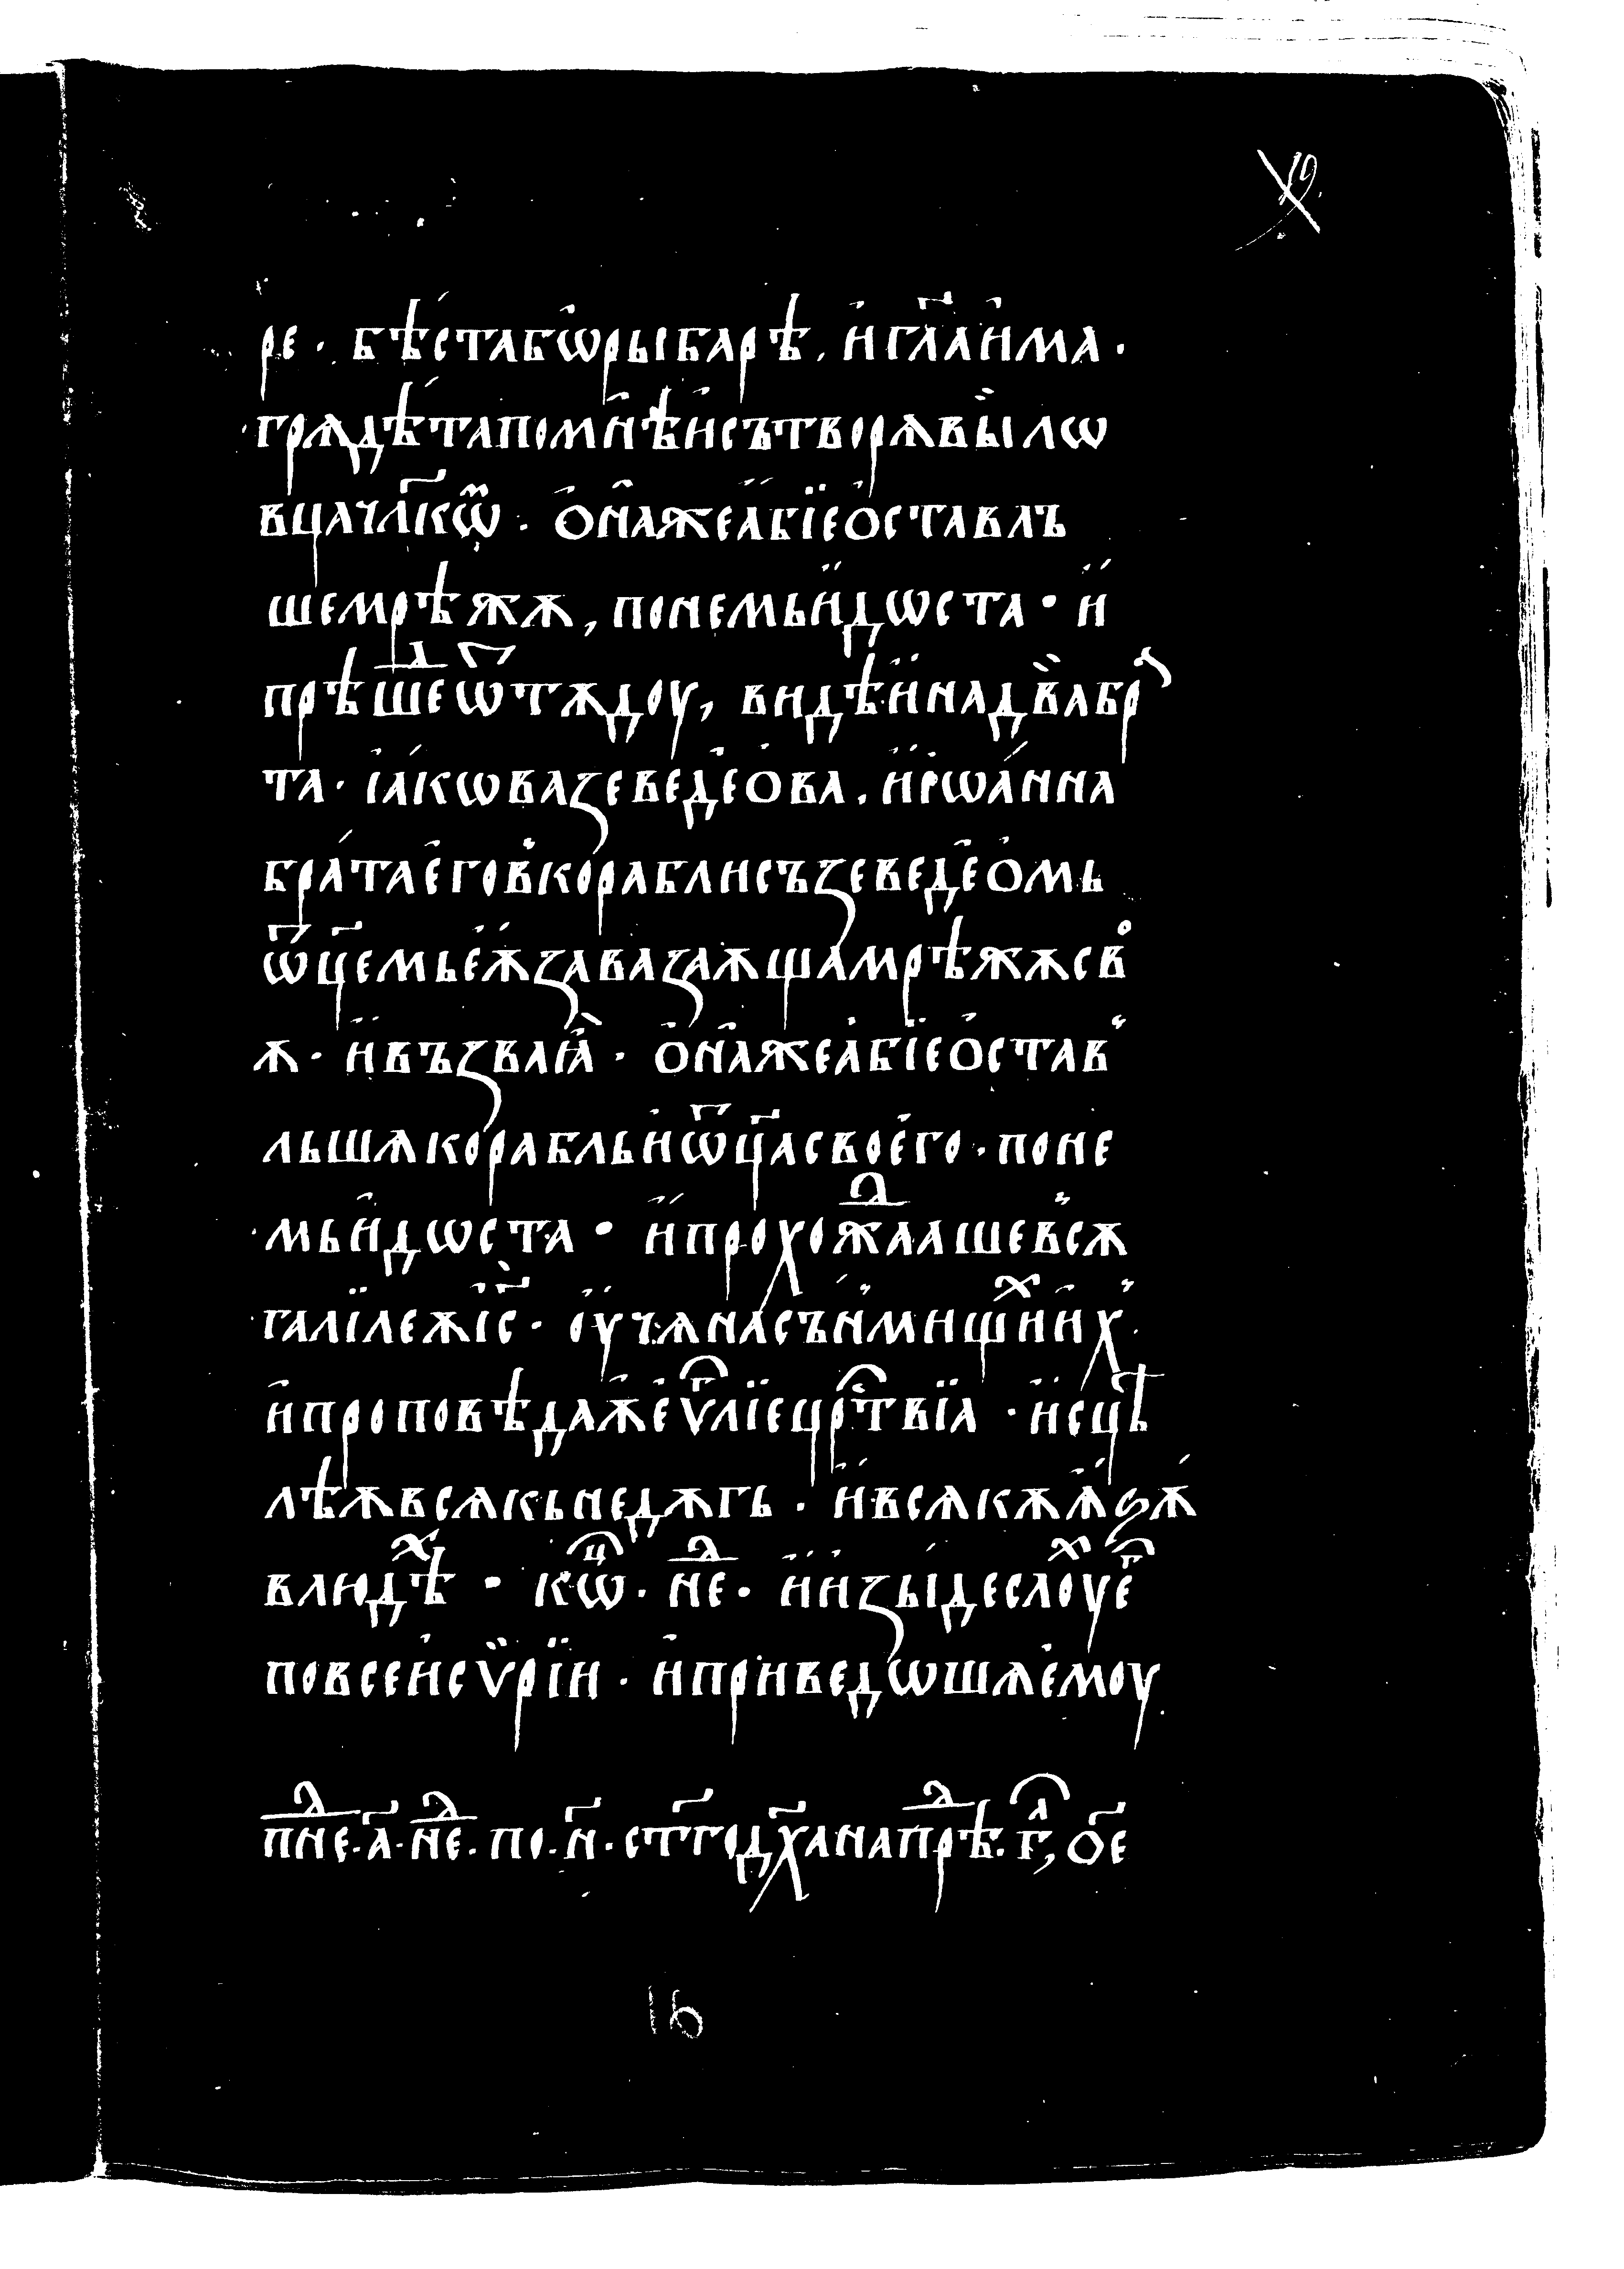 ре · бѣста бѡ рыбарѣ , и҆ гл҃а и҆ма ·
грѧдѣта по мнѣ и҆ сътворѧ вы̀ лѡ
вца чл҃кѡⷨ · ѻ҆на же а҆бїе ѻ҆ставль
ше мрѣжѫ , по немь и҆дѡста · и҆
прѣшеⷣ ѿтѫдоу , видѣ и҆на два бра
та · і҆а҆кѡва зеведеѻ҆ва , и҆ і҆ѡа́нна
бра́та е҆го в корабли съ зеведе҆ѻмь
ѿц҃емь е҆ѫ҆ завазаѫща мрѣжѫ своⷪ
ѫ · и҆ възва ꙗ҆̀ · ѻ҆на же а҆бїе ѻ҆став
льшѧ корабль и҆ ѿц҃а своего · по не
мь и҆дѡста · и҆ прохожⷣааше в сѫ
галїлеѫ і҆с҃ · оу҆чѧ на съни́мищиⷯ и҆х
и҆ проповѣдаѫ е҆ѵⷢлїе црⷭтвїа · и҆сцѣ
лѣѫ всѧкь недѫгь · и҆ всѧкѫ ѫ҆ѕѫ
в людѣⷯ · кѡⷰ · неⷣ · и҆ и҆зы́де слоуⷯ еⷢ
по всеи҆ сѵ̈рїи · и҆ приведѡшѧ е҆моу
пнеⷣ · а҃ · неⷣ · по · н҃ · ст҃го дх҃а напрѣⷣ · гⷧ , ѻ҃е
16